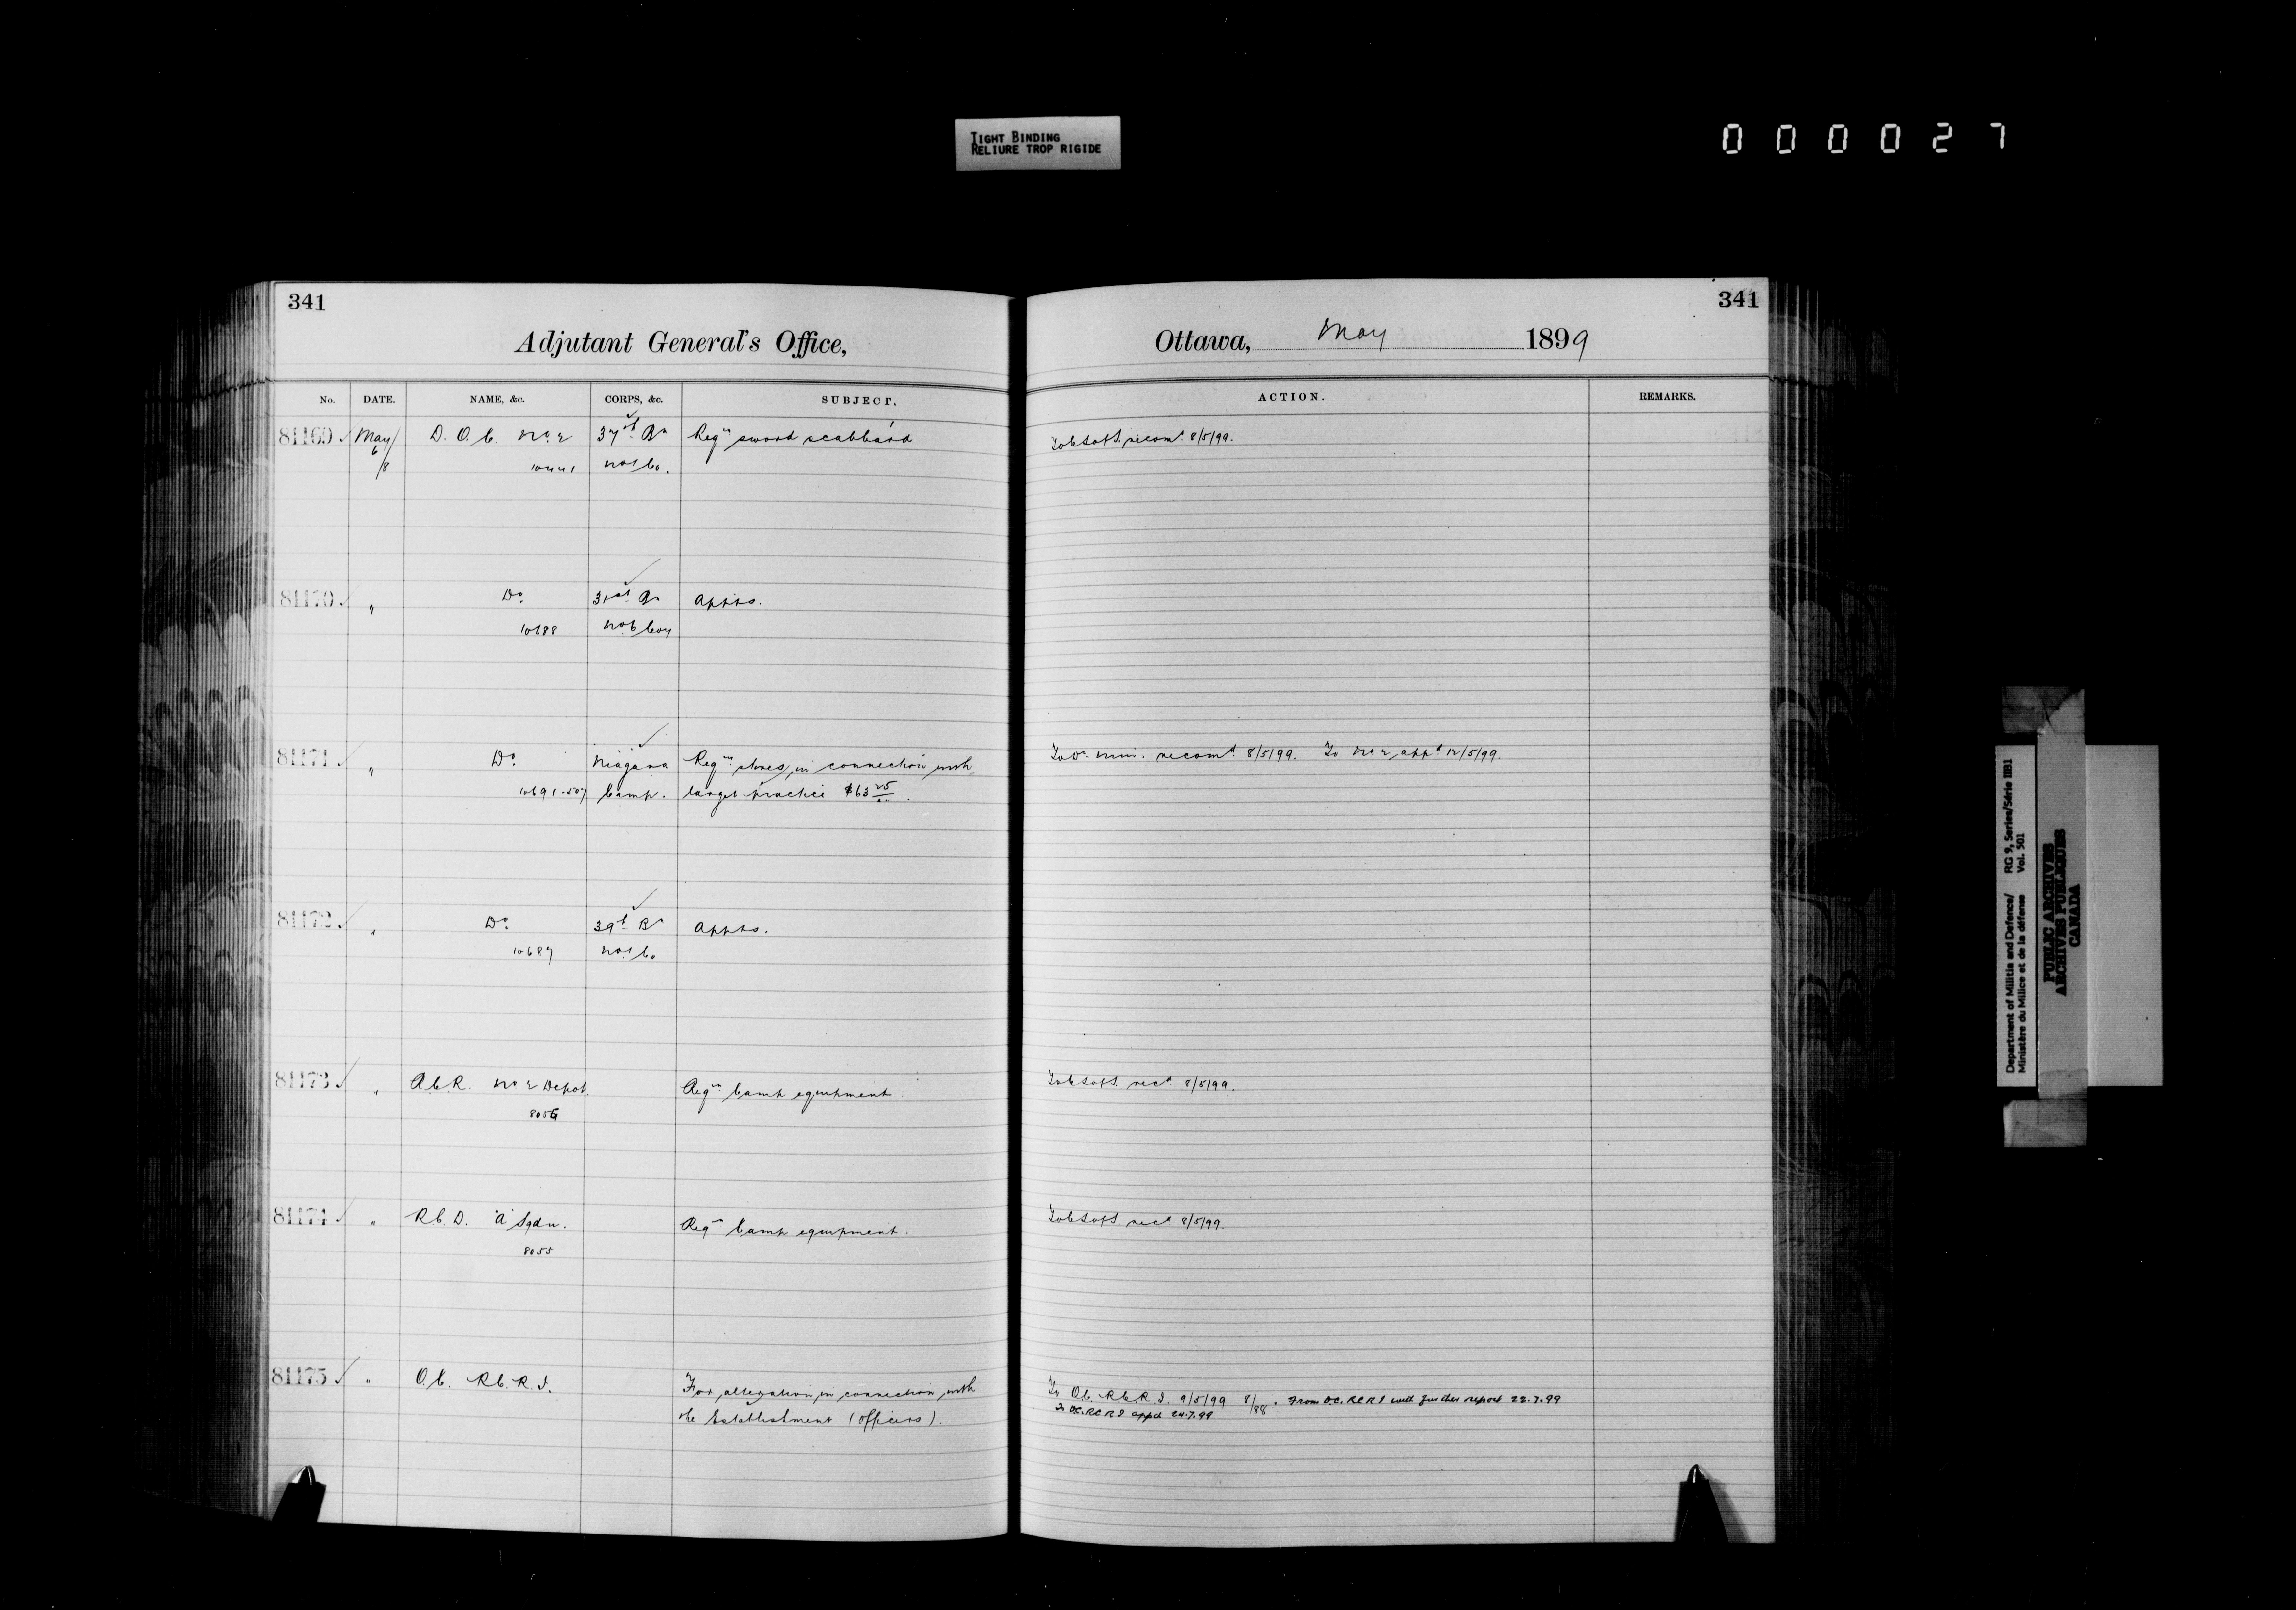 TIGHT BINDING
RELIURE TROP RIGIDE
000027
341
Adjutant General's Office,
No. DATE. NAME, &c. CORPS, &c. SUBJECT.
81169 May 6/8 D. O. C. No. 2 37th Bn Reqn sword scabbard
10441 No 1 Co.
81170 " Do. 31st Bn Appts.
10688 No 6 Coy
81171 " Do. Niagara Reqn stores, in connection with
10691-507 Camp. target practice $63 25/00.
81172 " Do. 39th Bn Appts.
10687 No 1 Co
81173 " R.C.R. No 2 Depot. Reqn Camp equipment
8056
81174 " R.C.D. "A" Sqdn. Reqn Camp equipment.
8055
81175 " O.C. R.C.R.I. For alteration, in connection with
the Establishment (Officers).
341
Ottawa, May 1899
ACTION. REMARKS.
To C S of S. recomd 8/5/99.
To Do. min. recomd 8/5/99. To No 2, appd 12/5/99.
To C S of S. recd 8/5/99.
To C S of S recd 8/5/99.
To O.C. R.C.R.I. 9/5/99 8/88. From O.C. RCRI with further report 22.7.99
To OC. RCRI appd 24.7.99
Department of Militia and Defence/ RG 9, Series/Série IIB1
Ministère du Milice et de la défense Vol. 501
PUBLIC ARCHIVES
ARCHIVES PUBLIQUES
CANADA